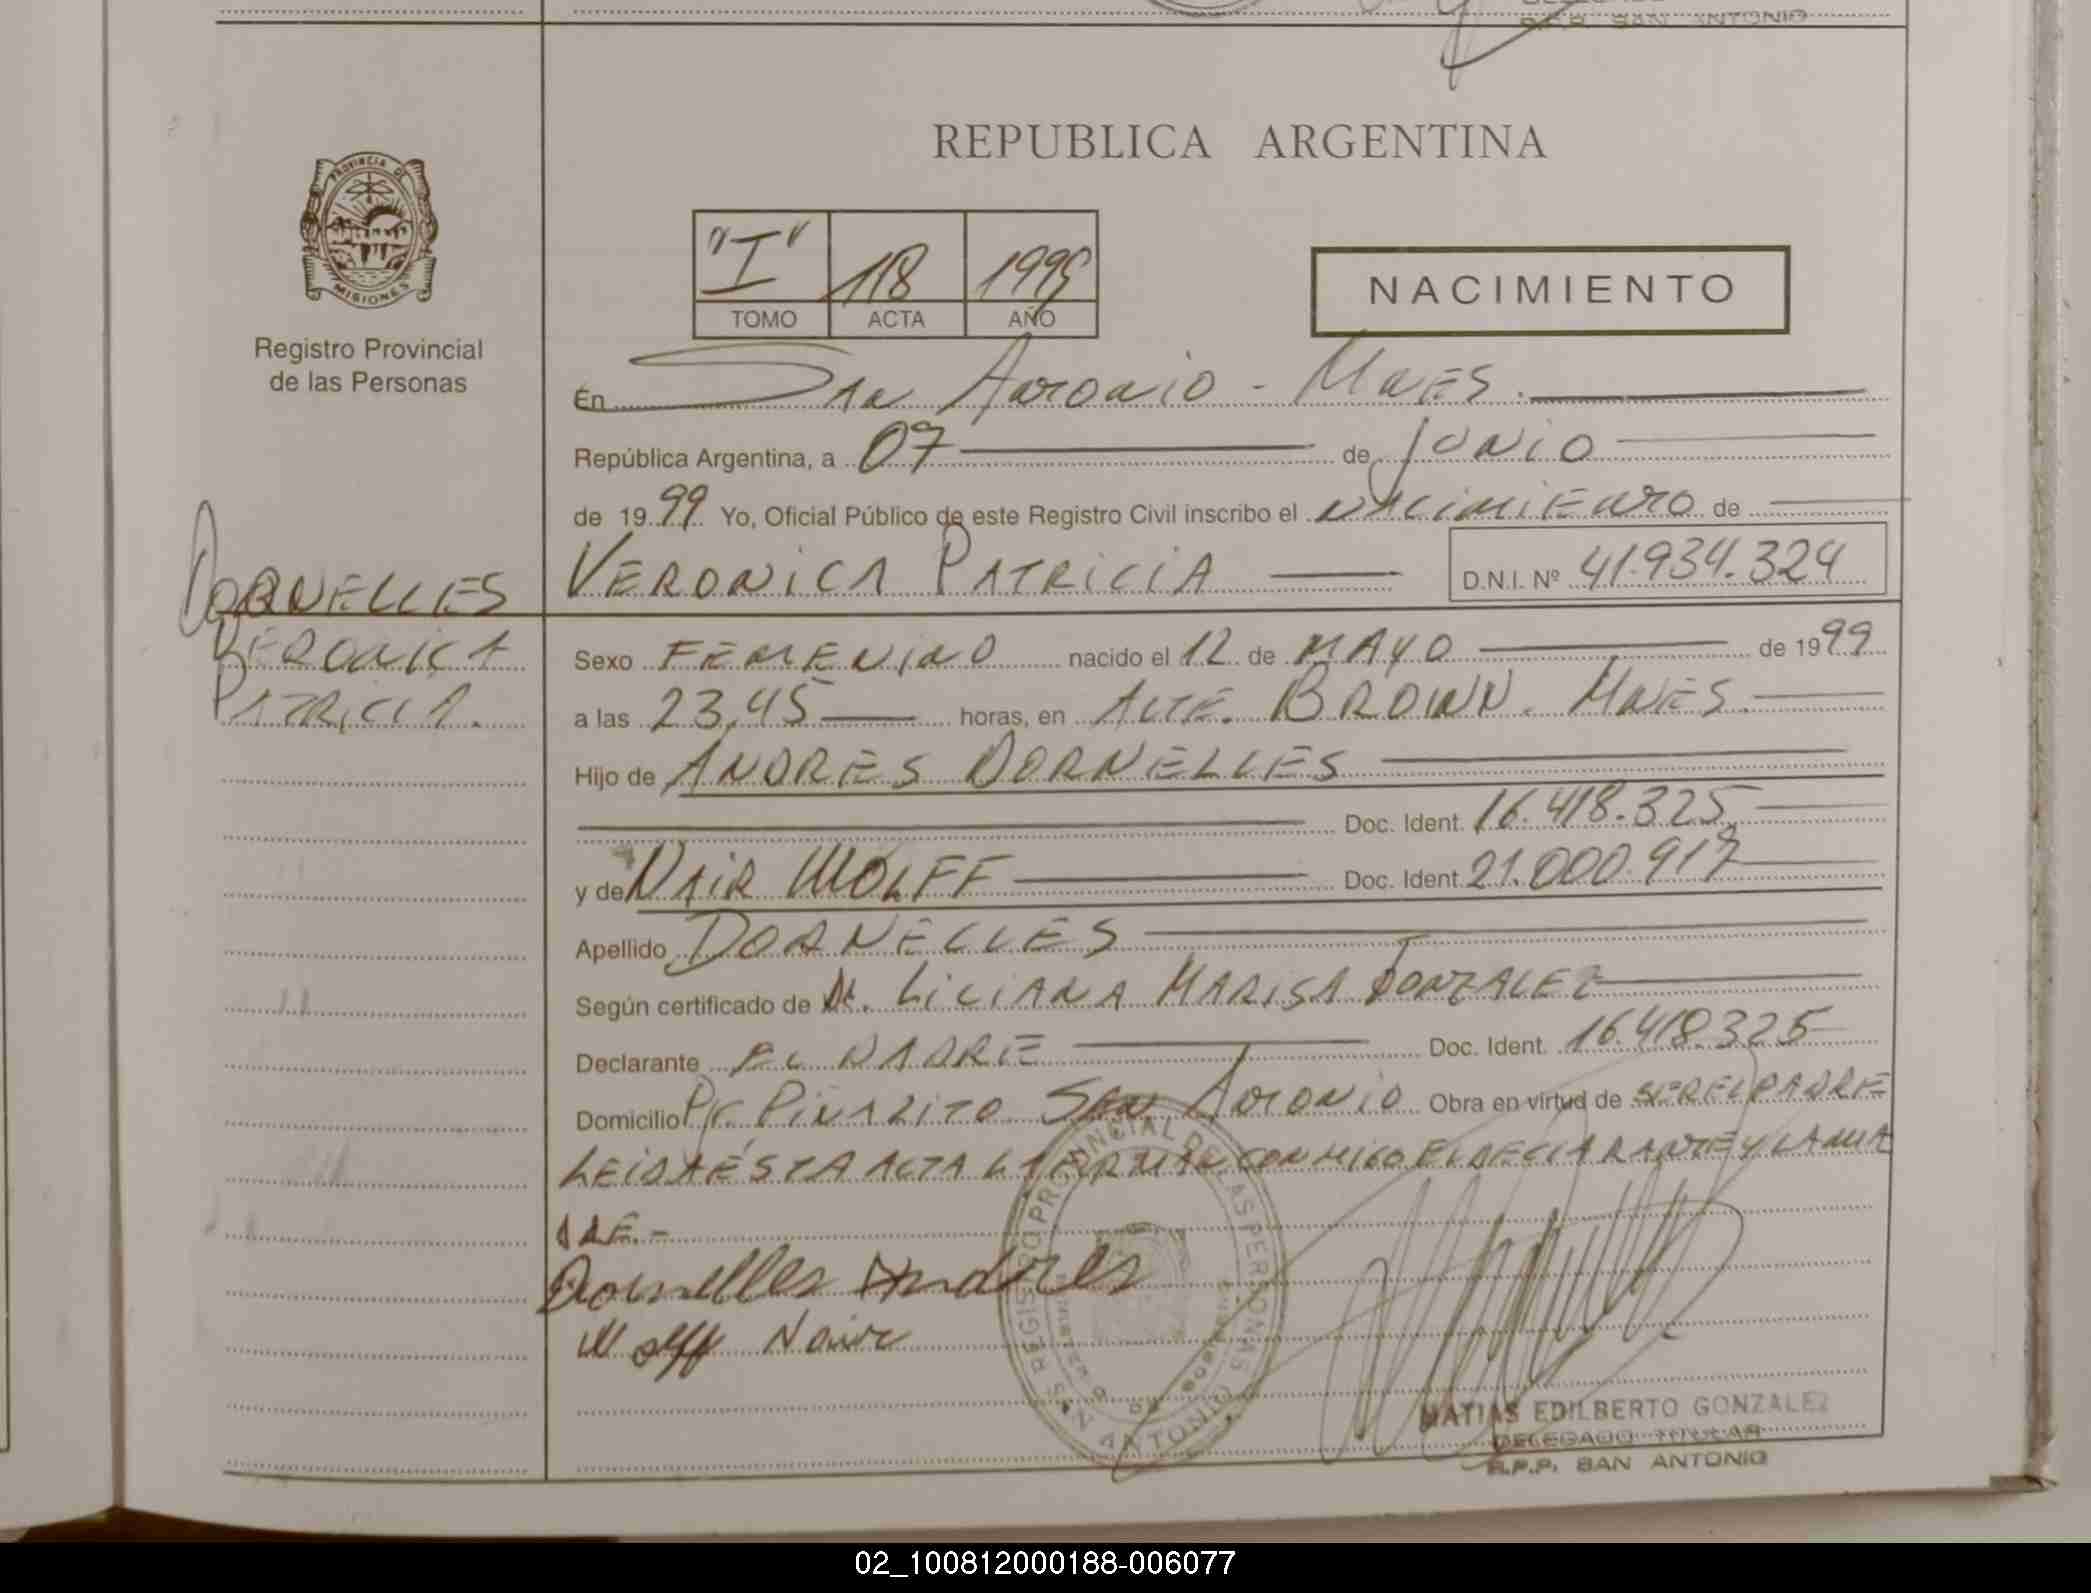 R.P.P. SAN ANTONIO
REPUBLICA ARGENTINA
PROVINCIA DE
MISIONES
Registro Provincial
de las Personas
"I" 118 1999
TOMO ACTA AÑO
NACIMIENTO
En San Antonio - Mnes.
República Argentina, a 07 de junio
de 1999 Yo, Oficial Público de este Registro Civil inscribo el nacimiento de
VERONICA PATRICIA D.N.I. Nº 41.934.324
DORNELLES
VERONICA
PATRICIA.
Sexo FEMENINO nacido el 12 de MAYO de 1999
a las 23,45 horas, en ALTE. BROWN. MNES.
Hijo de ANDRES DORNELLES
Doc. Ident. 16.418.325
y de NAIR WOLFF Doc. Ident. 21.000.917
Apellido DORNELLES
Según certificado de Dr. LILIANA MARISA GONZALEZ
Declarante EL PADRE Doc. Ident. 16.418.325
Domicilio Pje. PIÑALITO SAN ANTONIO Obra en virtud de SER EL PADRE
LEIDA ÉSTA ACTA LA FIRMAN CONMIGO EL DECLARANTE Y LA MA
DRE.-
Dornelles Andres
Wolff Nair
REGISTRO PROVINCIAL DE LAS PERSONAS
SAN ANTONIO
MATIAS EDILBERTO GONZALEZ
DELEGADO TITULAR
R.P.P. SAN ANTONIO
02_100812000188-006077